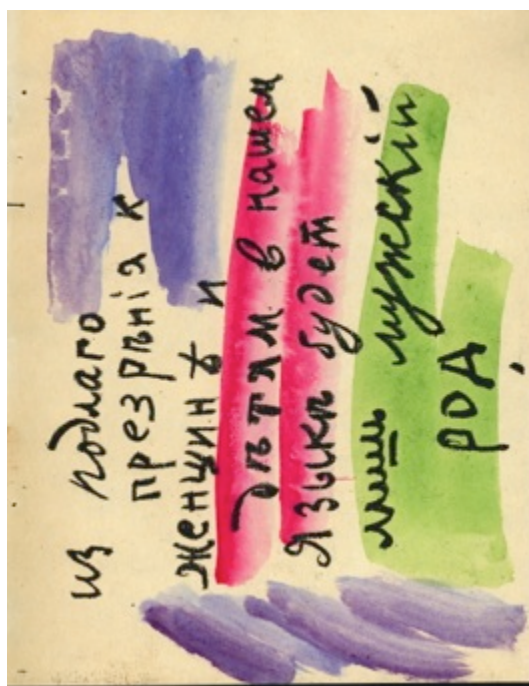 из подлаго
презрѣнія к
женщинѣ и
дѣтям в нашем
языкѣ будет
лишь мужскій
род.